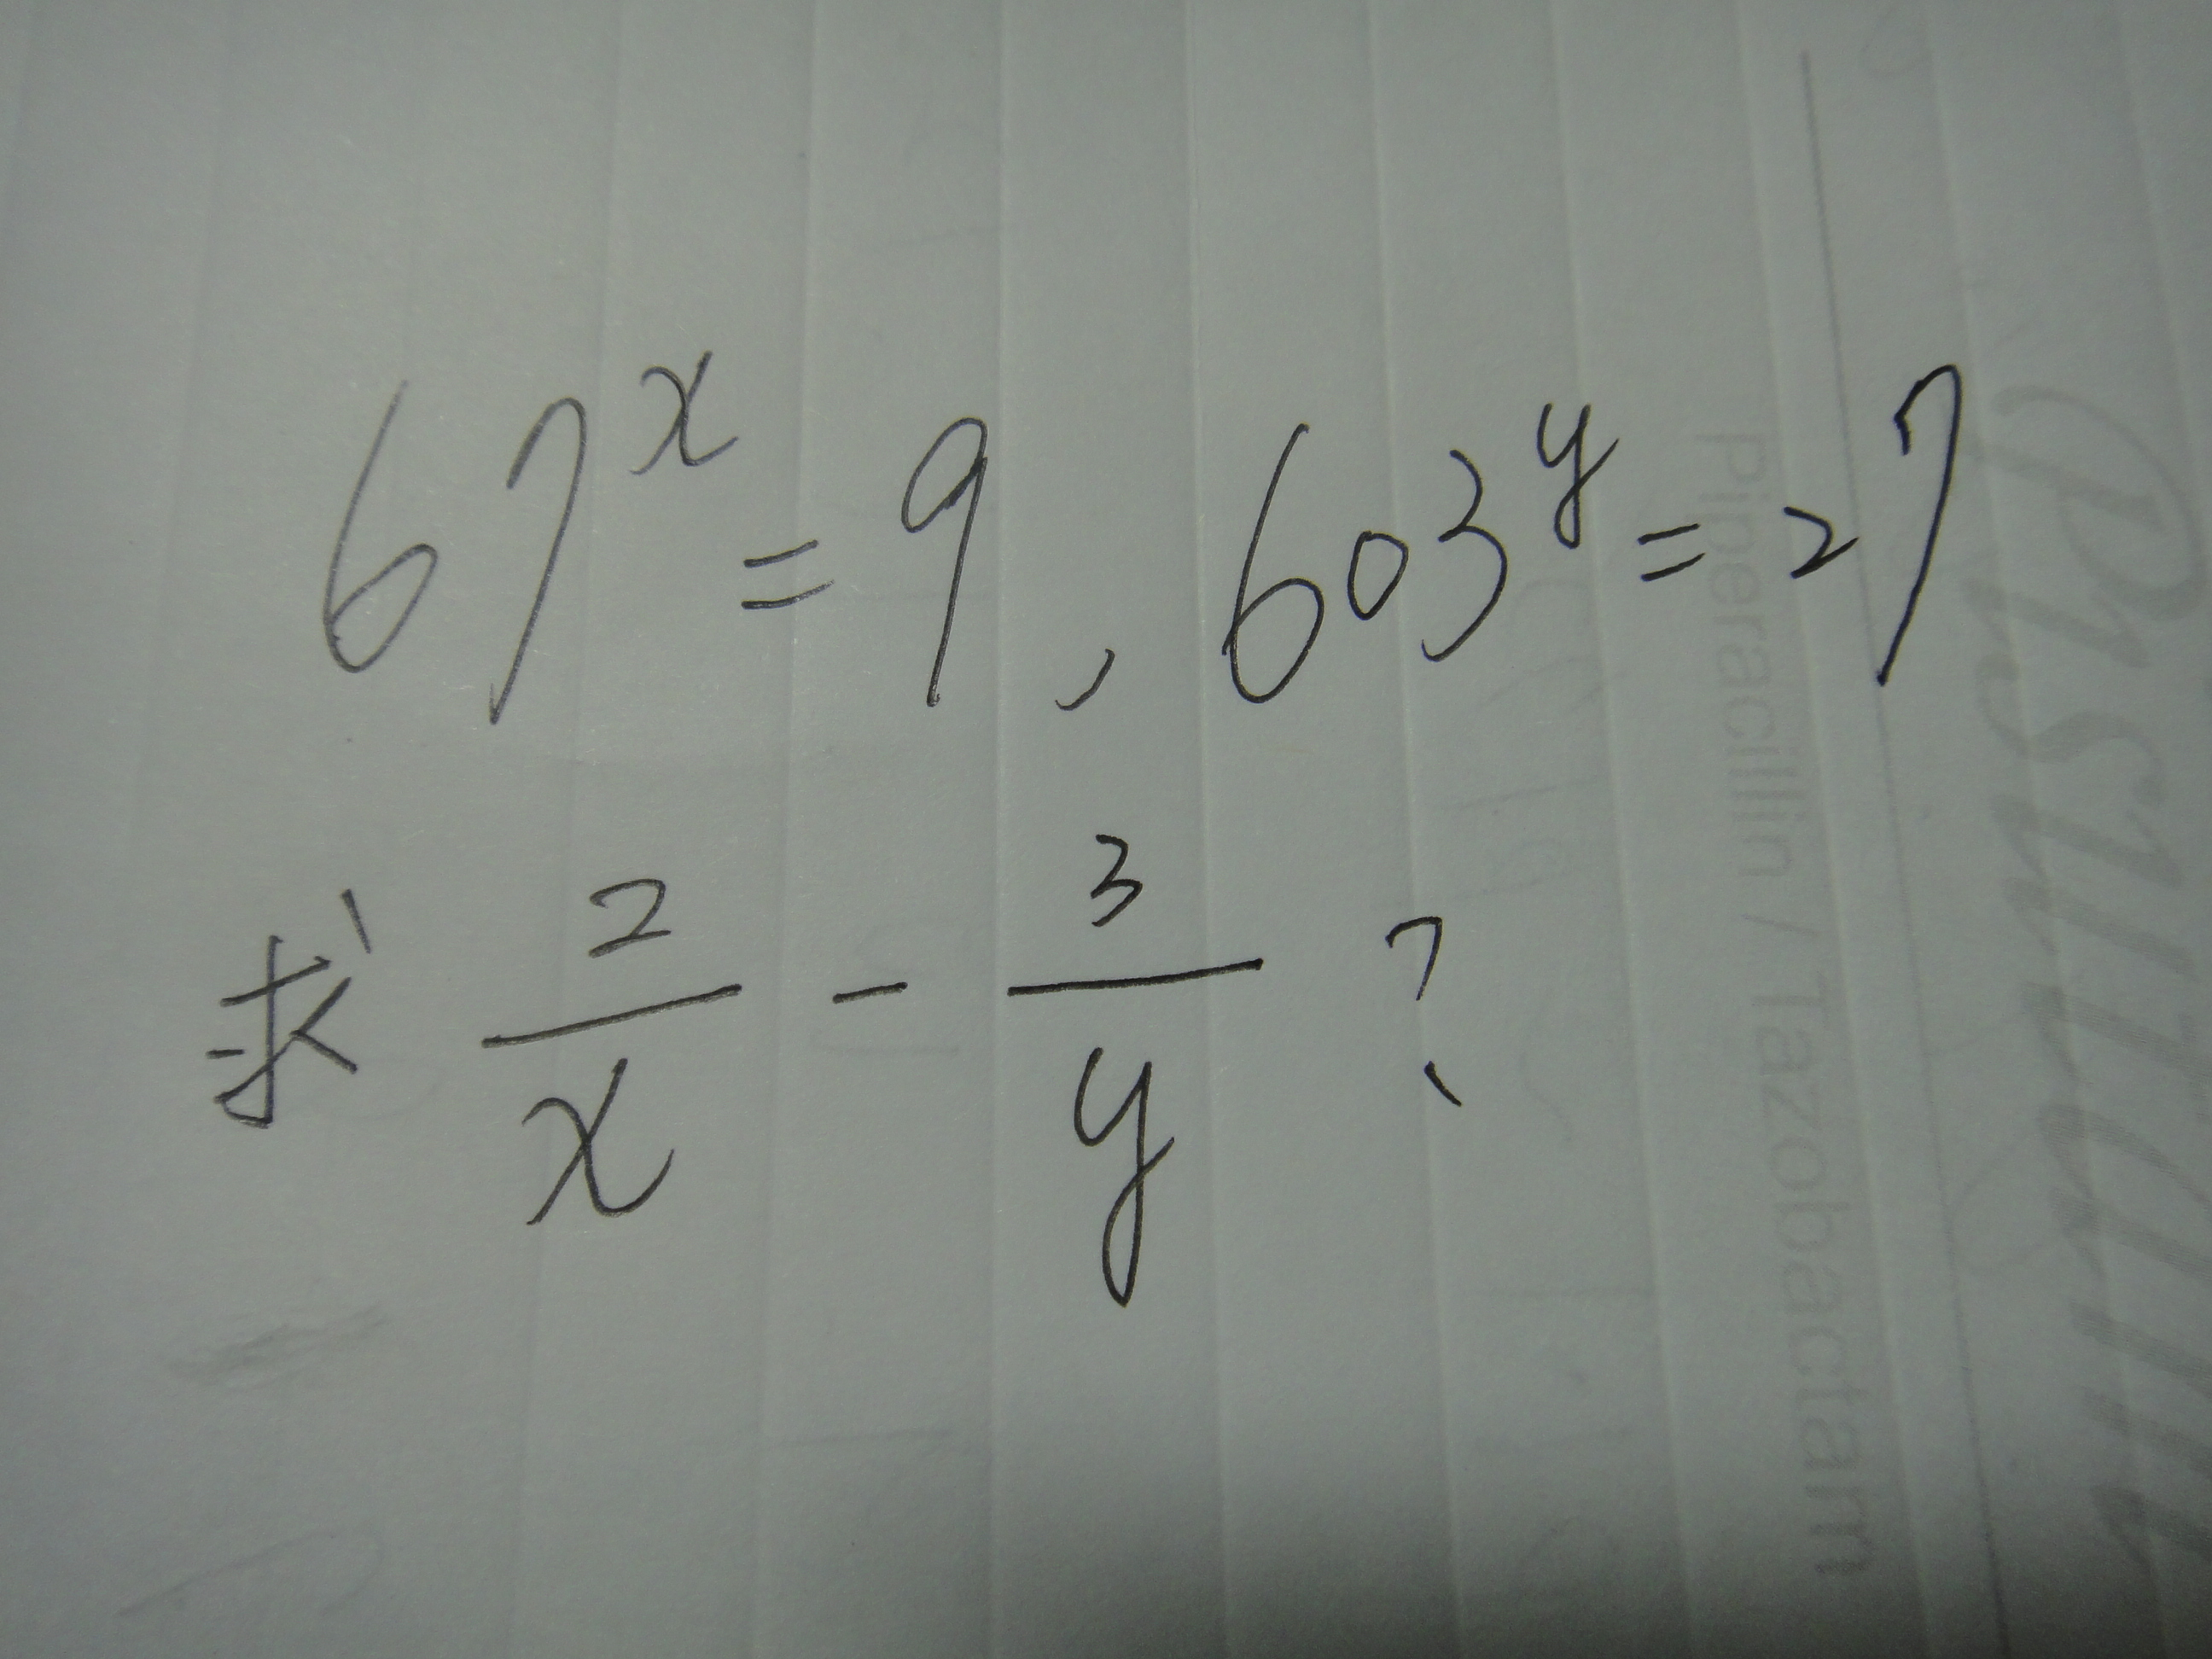 67^x = 9, 603^y = 27
求 2/x - 3/y ?
Piperacillin / Tazobactam